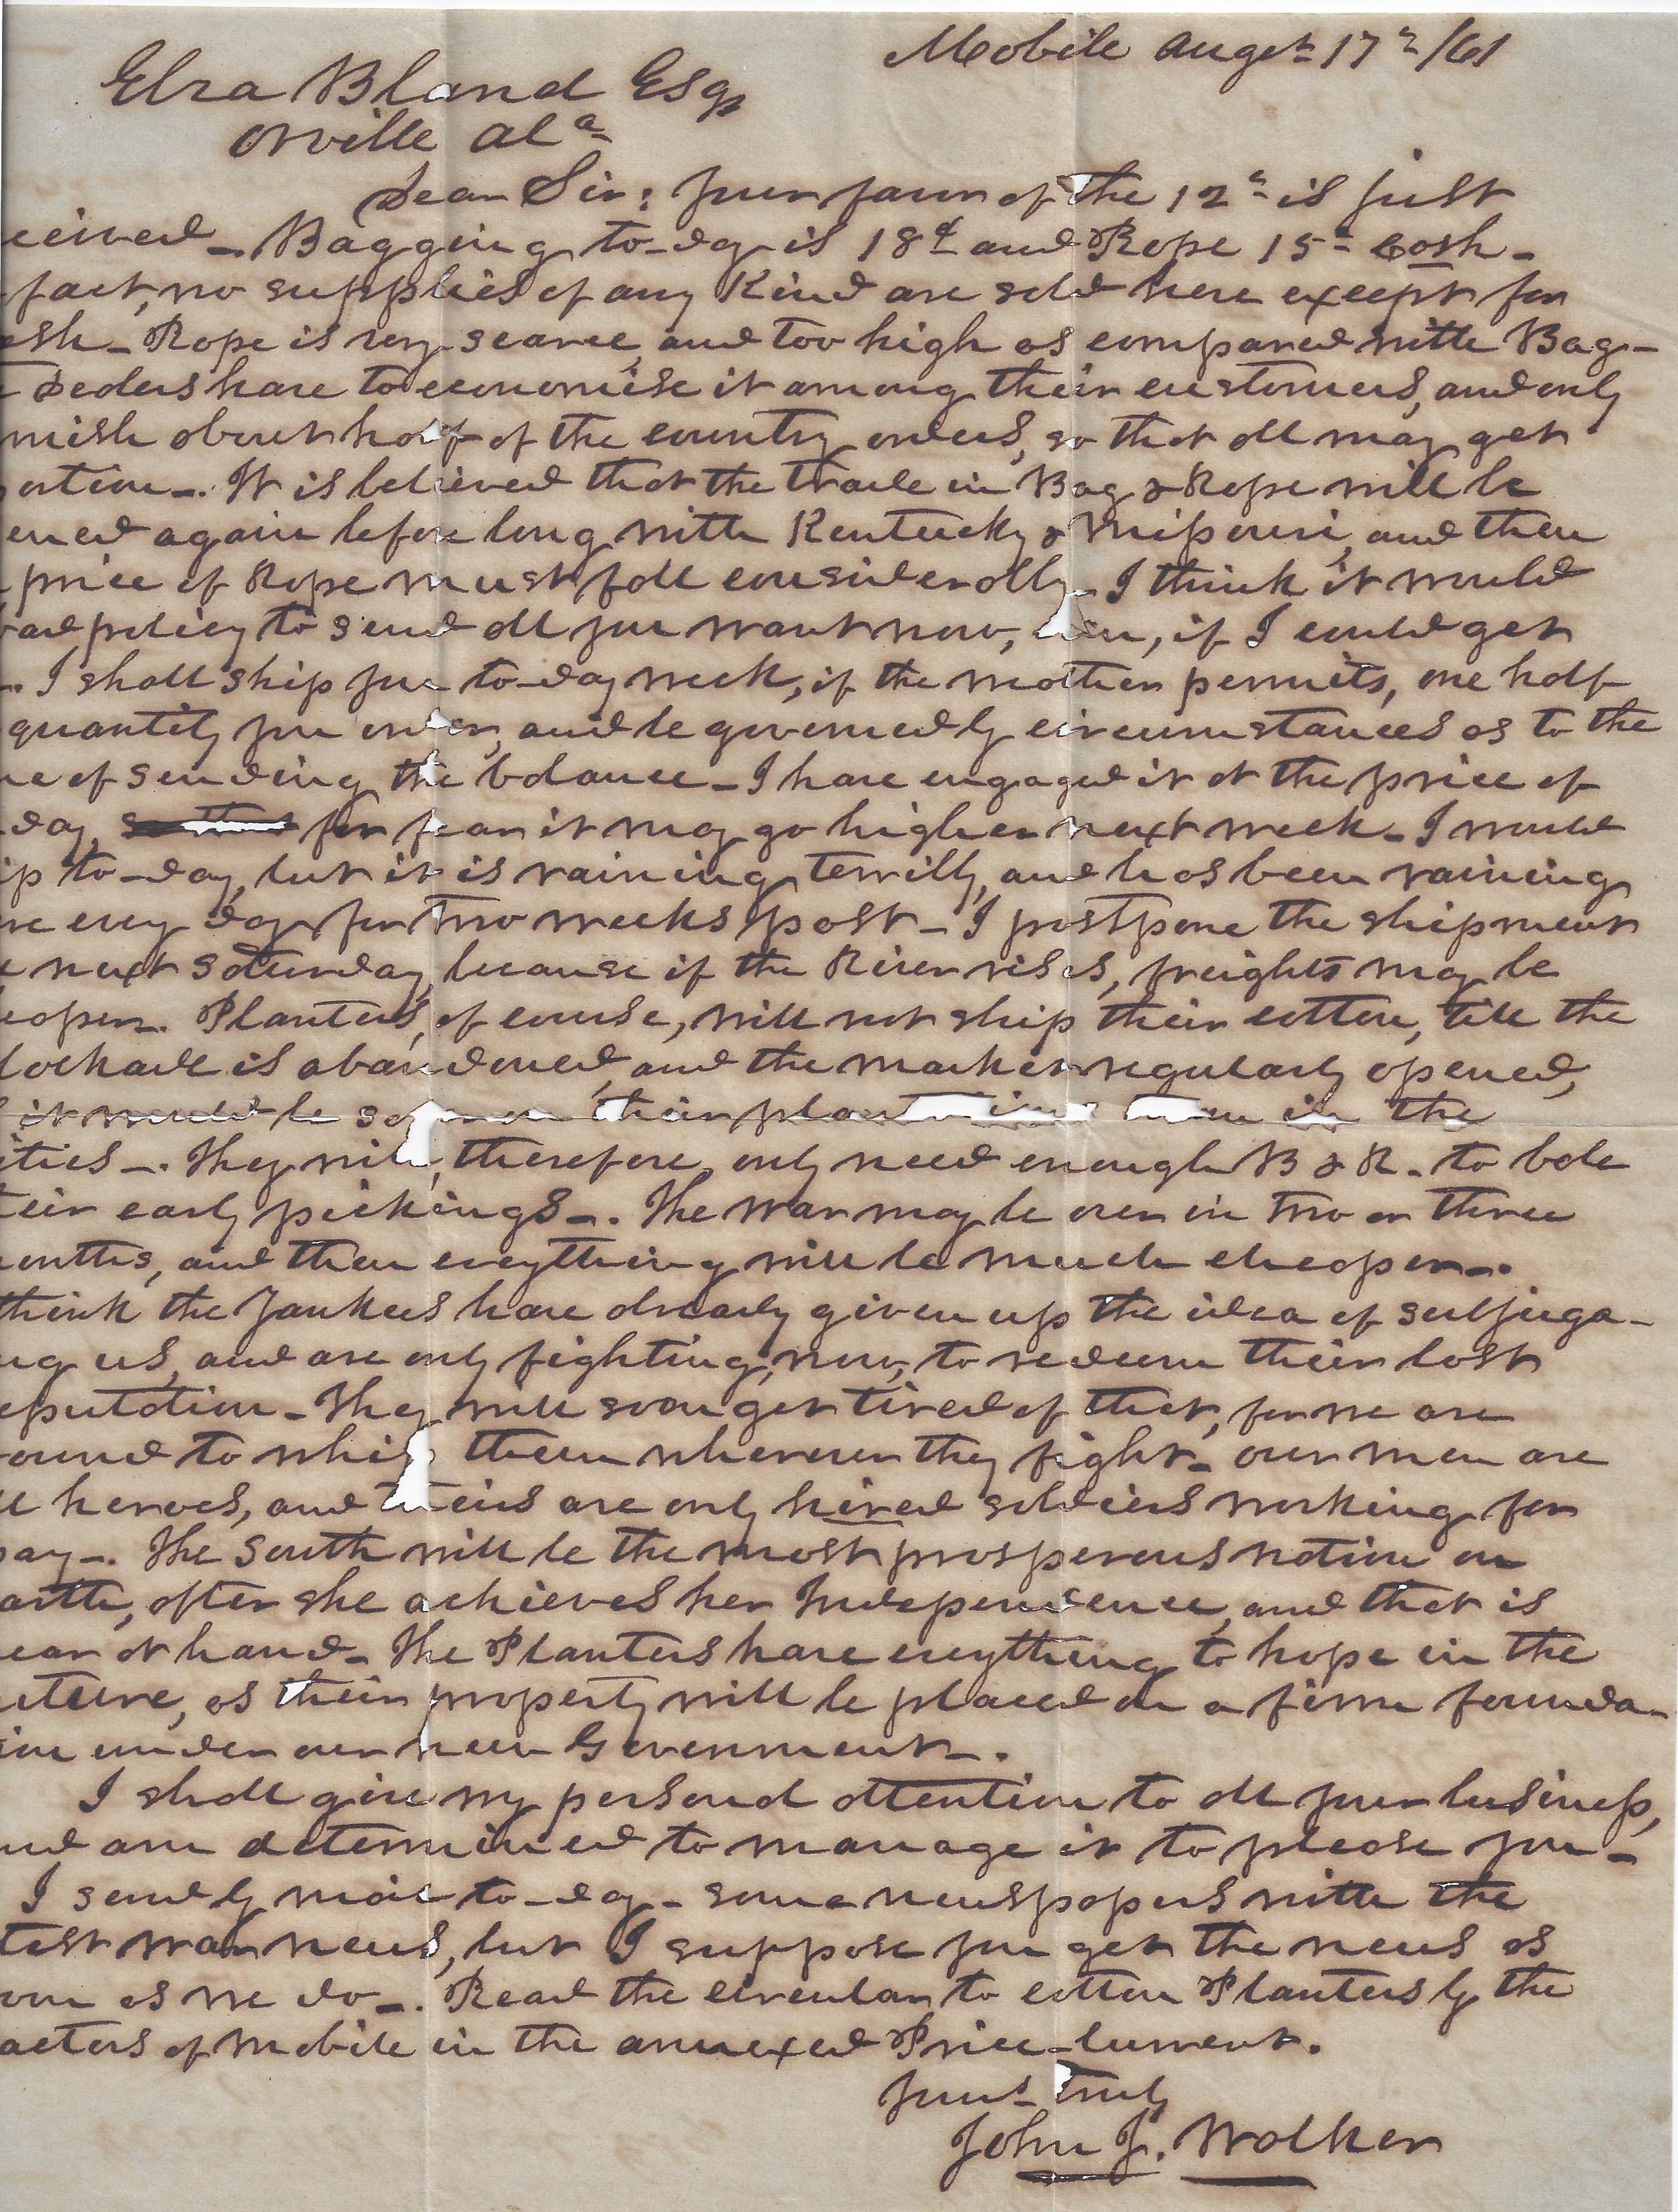 Mobile Augst 17th/61
Elza Bland Esqr
Orville Ala
Dear Sir: Your favor of the 12th is just
ceived_. Bagging to-day is 18c and Rope 15c Cash_
fact, no supplies of any Kind are sold here except for
ash_ Rope is very scarce, and too high as compared with Bag_
Dealers have to economise it among their customers, and only
nish about half of the country orders, so that all may get
ortion_. It is believed that the trade in Bag & Rope will be
ened again before long with Kentucky & Missouri, and then
price of Rope must fall considerably_ I think it would
bad policy to send all you want now, even, if I could get
. I shall ship you to-day week, if the weather permits, one half
quantity you order, and be governed by circumstances as to the
me of sending the balance_ I have engaged it at the price of
day, so that for fear it may go higher next week_ I would
ip to-day, but it is raining terribly, and has been raining
re every day for two weeks past_ I postpone the shipment
next Saturday, because if the River rises, freights may be
eaper. Planters, of course, will not ship their cotton, till the
lockade is abandoned, and the market regularly opened,
it would be so on their plantations than in the
ities_. They will, therefore, only need enough B & R. to bale
eir early pickings_. The war may be over in two or three
onths, and then everything will be much cheaper_.
think the Yankees have already given up the idea of subjuga_
ng us, and are only fighting, now, to redeem their lost
eputation_ They will soon get tired of that, for we are
ound to whip them wherever they fight_ our men are
ll heroes, and theirs are only hired soldiers working for
pay_. The South will be the most prosperous nation on
arth, after she achieves her Independence, and that is
ear at hand_ The Planters have everything to hope in the
uture, as their property will be placed on a firm founda_
ion under our new Government_.
I shall give my personal attention to all your business,
nd am determined to manage it to please you_
I send by mail to-day_ some newspapers with the
test war news, but I suppose you get the news as
oon as we do_. Read the circular to cotton Planters by the
actors of Mobile in the annexed Price_Current.
Yours truly
John J. Walker